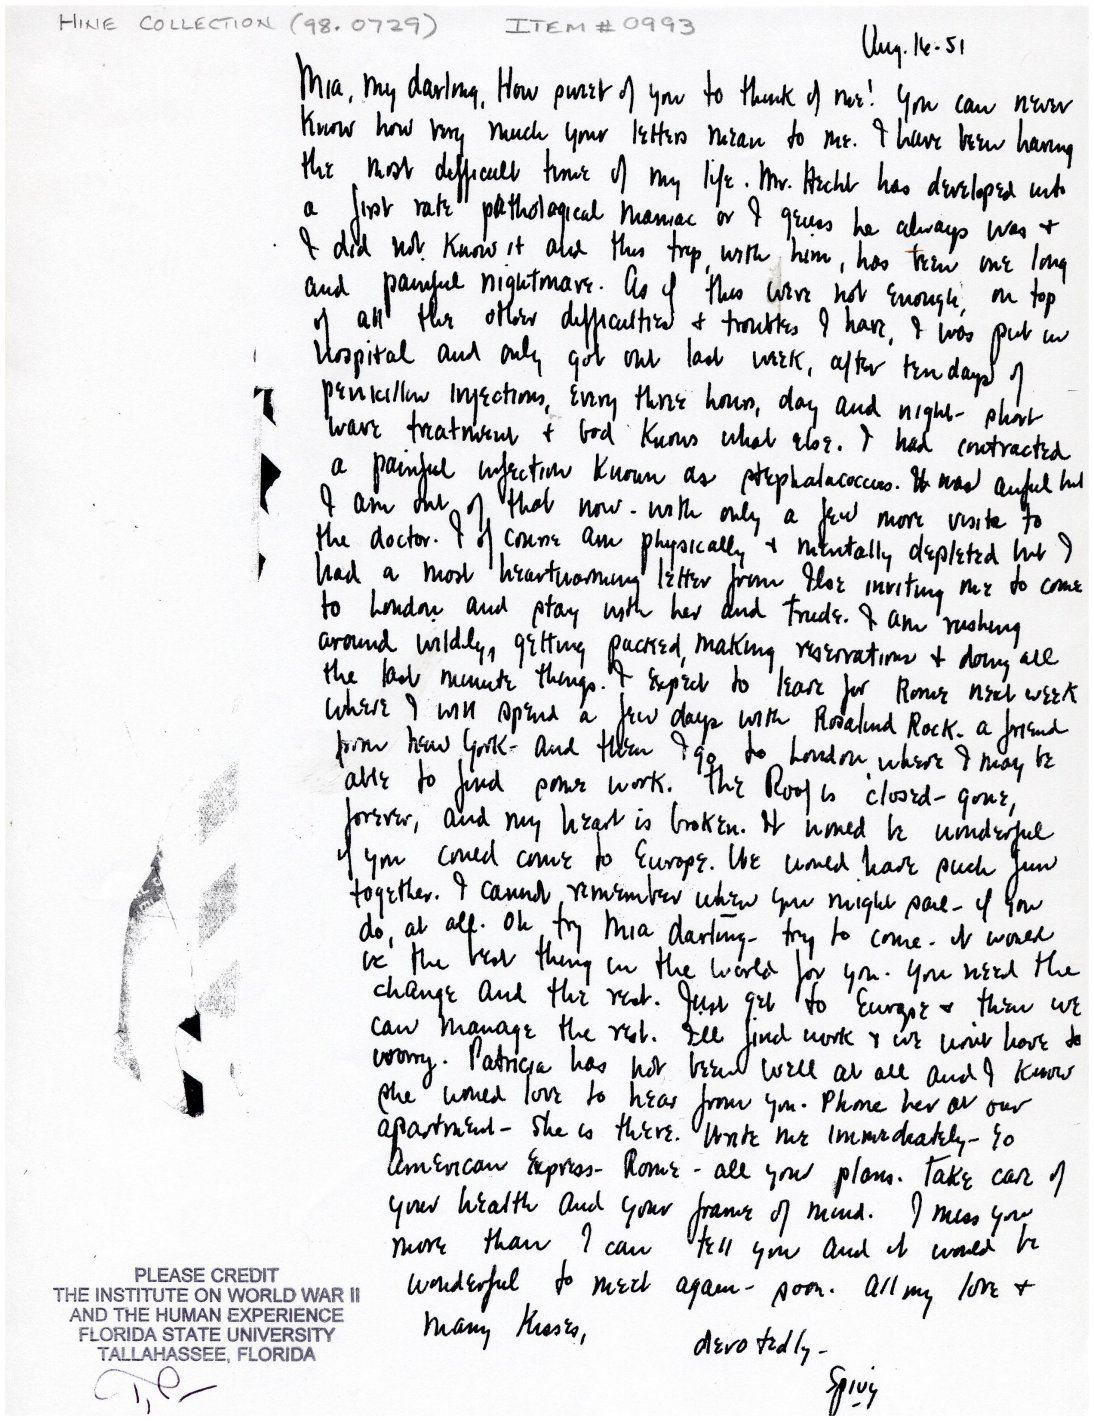 HINE COLLECTION (98.0729) ITEM # 0993
Aug. 16-51
Mia, my darling, How sweet of you to think of me! You can never
know how very much your letters mean to me. I have been having
the most difficult time of my life. Mr. Hecht has developed into
a first rate pathological maniac or I guess he always was +
I did not know it and this trip, with him, has been one long
and painful nightmare. As if this were not enough, on top
of all the other difficulties + troubles I have, I was put in
hospital and only got out last week, after ten days of
penicillin injections, every three hours, day and night - short
wave treatment + God knows what else. I had contracted
a painful infection known as stephalacoccus. It was awful but
I am out of that now - with only a few more visits to
the doctor. I of course am physically + mentally depleted but I
had a most heartwarming letter from Ilse inviting me to come
to London and stay with her and Trude. I am rushing
around wildly, getting packed, making reservations + doing all
the last minute things. I expect to leave for Rome next week
where I will spend a few days with Rosalind Rock - a friend
from New York - and then I go to London, where I may be
able to find some work. The Roof is closed - gone,
forever, and my heart is broken. It would be wonderful
if you could come to Europe. We would have such fun
together. I cannot remember when you might sail - if you
do, at all. Oh try Mia darling - try to come - it would
be the best thing in the world for you. You need the
change and the rest. Just get to Europe + then we
can manage the rest. I'll find work + we won't have to
worry. Patricia has not been well at all and I know
she would love to hear from you. Phone her at our
apartment - she is there. Write me immediately - to
American Express - Rome - all your plans. Take care of
your health and your frame of mind. I miss you
more than I can tell you and it would be
wonderful to meet again - soon. All my love +
many kisses,
devotedly -
Spivy
PLEASE CREDIT
THE INSTITUTE ON WORLD WAR II
AND THE HUMAN EXPERIENCE
FLORIDA STATE UNIVERSITY
TALLAHASSEE, FLORIDA